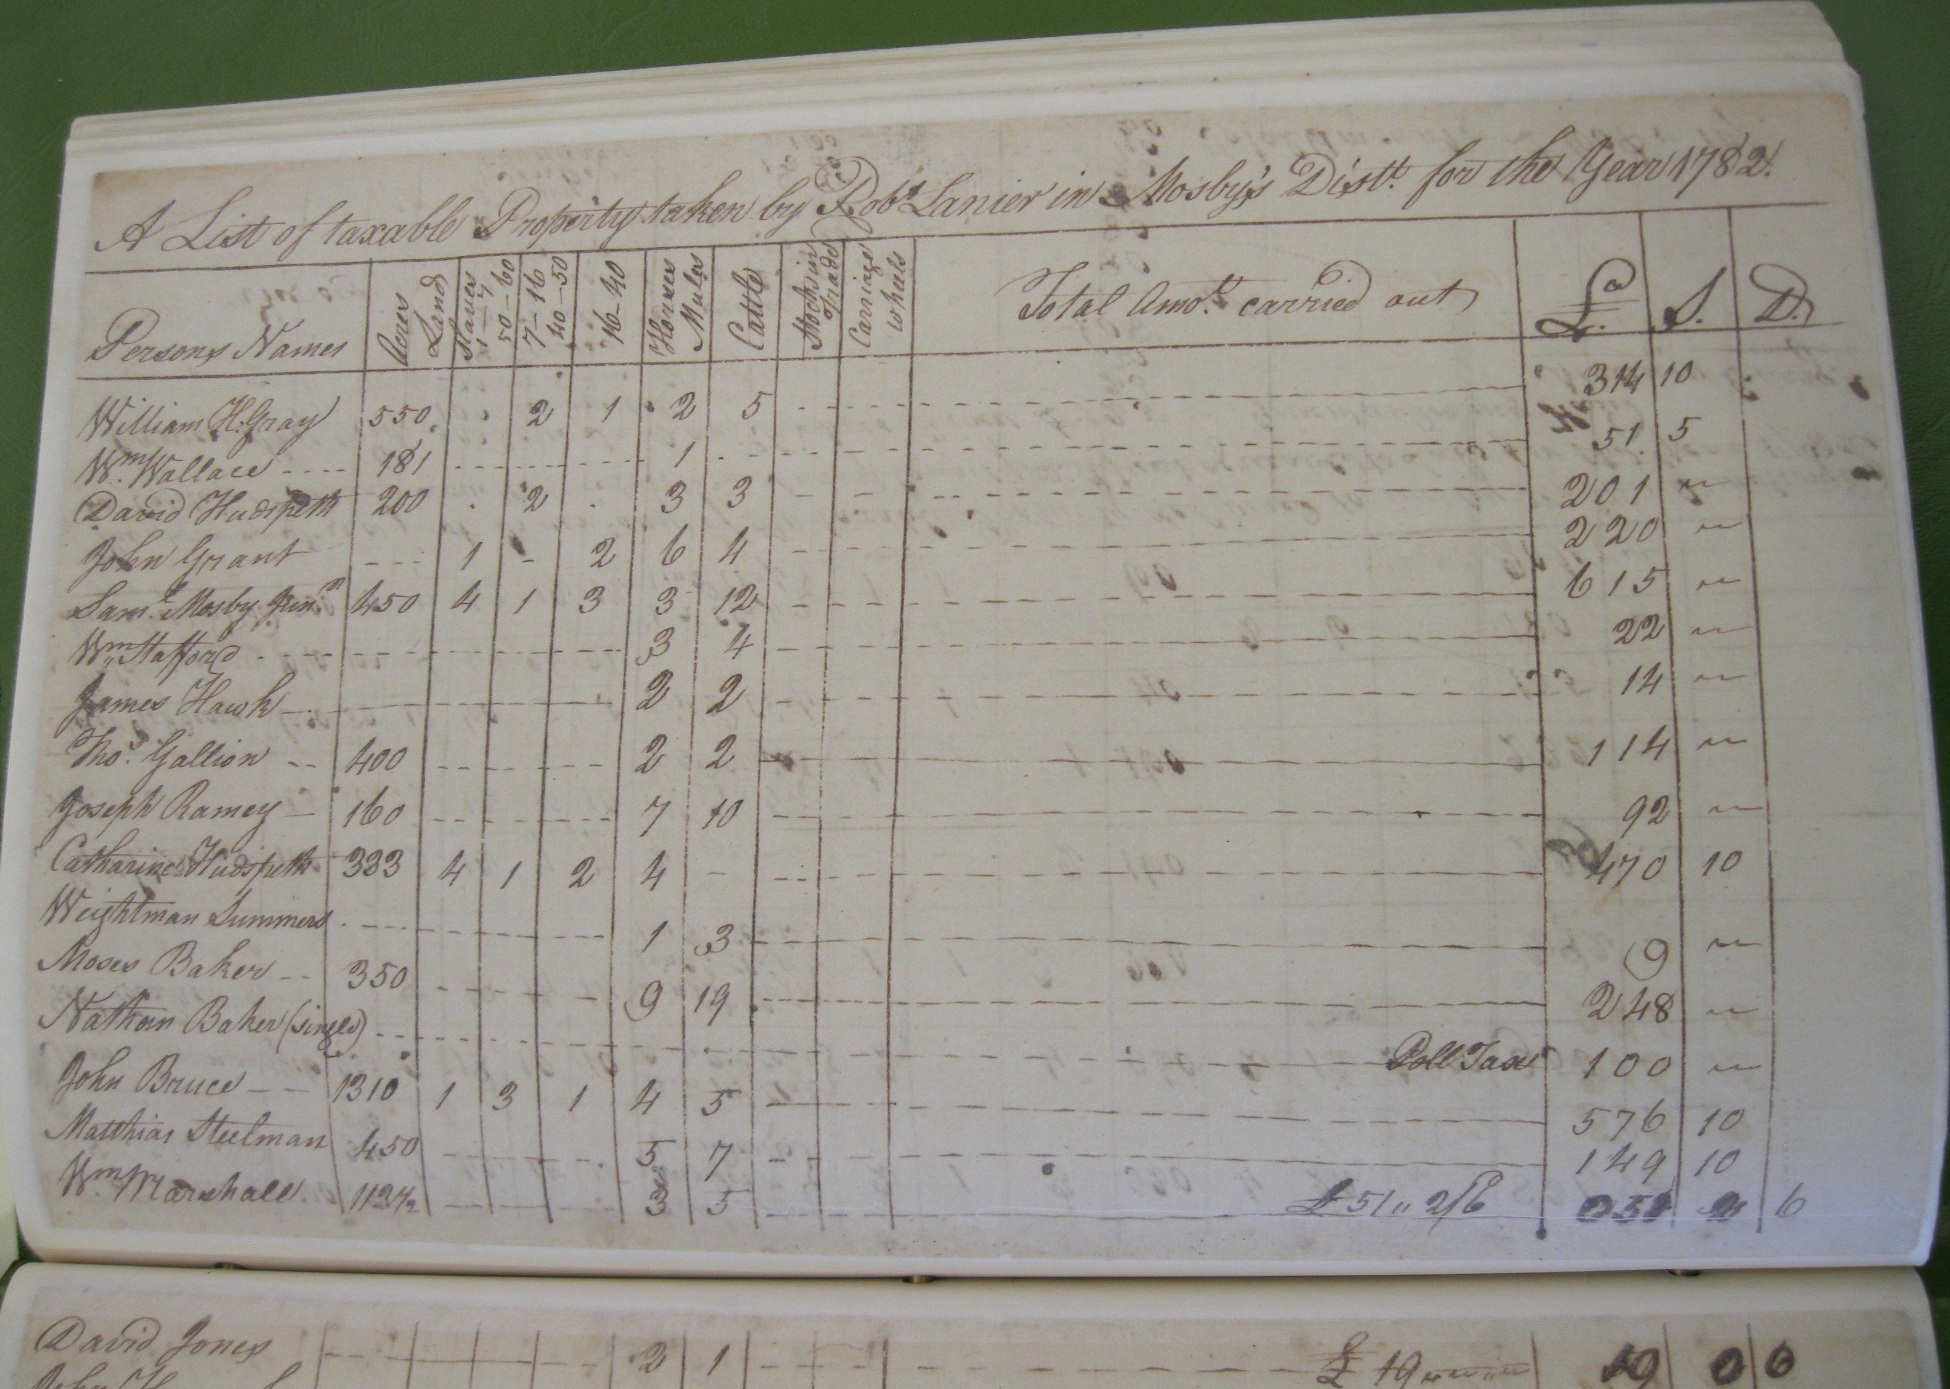 A List of taxable Property taken by Robt Lanier in Mosby's Distt. for the Year 1782.
Persons Names Acres Land Slaves 1-7 50-60 7-16 40-50 16-40 Horses Mules Cattle Stocks in Trade Carriage wheels Total Amot. carried out £. S. D.
William H. Gray 550 2 1 2 5 314 10
Wm. Wallace 181 1 51 5
David Hudspeth 200 2 3 3 201 "
John Grant 1 - 2 6 4 220 "
Saml. Mosby Junr 450 4 1 3 3 12 615 "
Wm. Stafford 3 4 22 "
James Hawk 2 2 14 "
Thos. Gallion 400 2 2 114 "
Joseph Ramey 160 7 10 92 "
Catharine Hudspeth 333 4 1 2 4 - 470 10
Weightman Summers 1 3 9 "
Moses Baker 350 9 19 248 "
Nathan Baker (single) Poll Tax 100 "
John Bruce 1310 1 3 1 4 5 576 10
Matthias Steelman 450 5 7 149 10
Wm. Marshall 112 1/2 3 5 £ 51 " 2/6 6
David Jones 2 1 £ 19 19 0 0
John